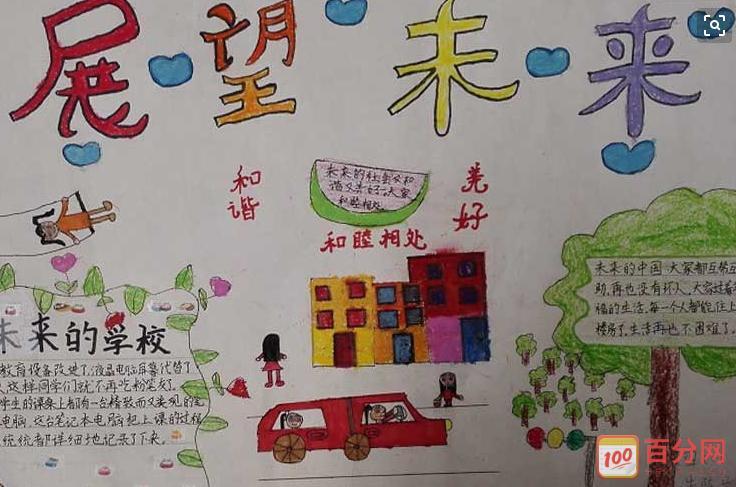 展望未来
和谐
未来的社会又和
谐又美好,大家
和睦相处。
美好
和睦相处
未来的学校
教育设备改进了,液晶电脑屏幕代替了
这样同学们就不再吃粉笔灰了
学生的课桌上都有一台精致而又美观的笔
电脑,这台笔记本电脑把上课的过程
统统都详细地记录了下来。
未来的中国,大家都互帮互
助,再也没有坏人,大家过着
福的生活,每一个人都能住上
楼房了,生活再也不困难了。
100
百分网